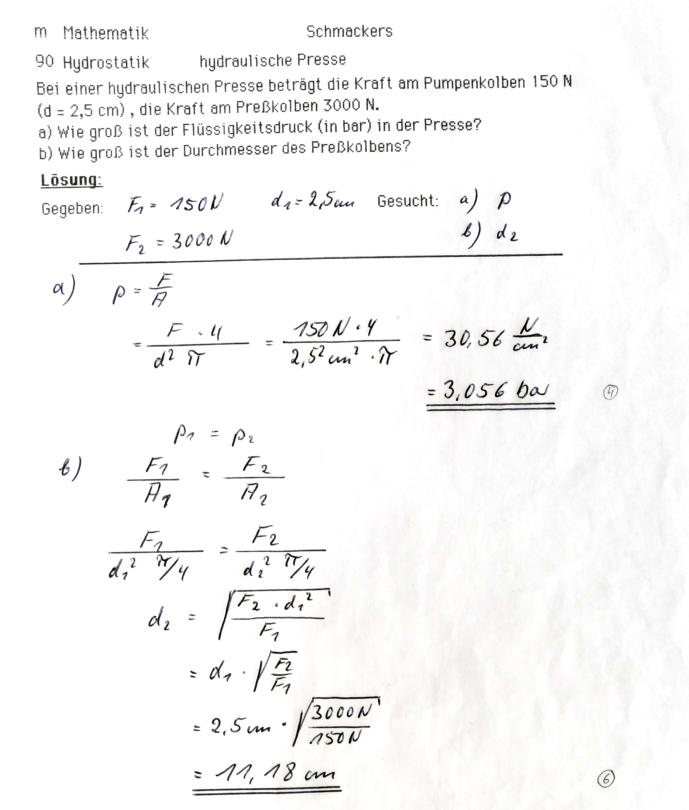 m Mathematik Schmackers
90 Hydrostatik hydraulische Presse
Bei einer hydraulischen Presse beträgt die Kraft am Pumpenkolben 150 N
(d = 2,5 cm) , die Kraft am Preßkolben 3000 N.
a) Wie groß ist der Flüssigkeitsdruck (in bar) in der Presse?
b) Wie groß ist der Durchmesser des Preßkolbens?
Lösung:
Gegeben: F₁ = 150 N d₁ = 2,5 cm Gesucht: a) p
F₂ = 3000 N b) d₂
a) p = F/A
= F · 4 / d² π = 150 N · 4 / 2,5² cm² · π = 30,56 N/cm²
= 3,056 bar ④
p₁ = p₂
b) F₁/A₁ = F₂/A₂
F₁ / d₁² π/4 = F₂ / d₂² π/4
d₂ = √(F₂ · d₁² / F₁)
= d₁ · √(F₂/F₁)
= 2,5 cm · √(3000 N / 150 N)
= 11,18 cm ⑥